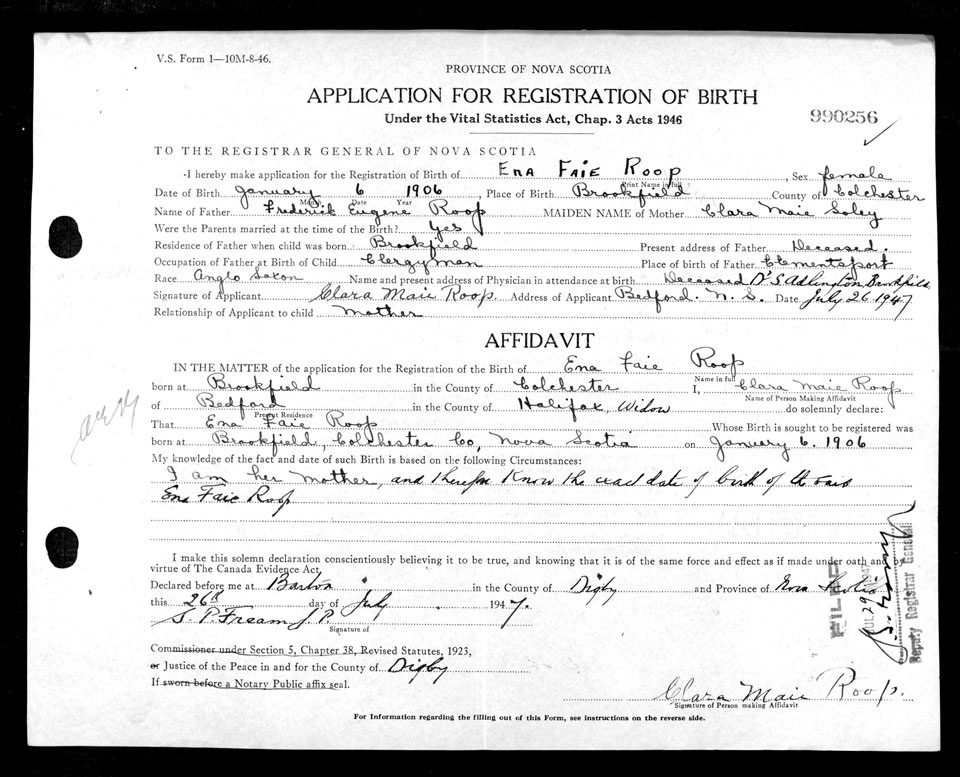 V.S. Form 1—10M-8-46.
PROVINCE OF NOVA SCOTIA
APPLICATION FOR REGISTRATION OF BIRTH
Under the Vital Statistics Act, Chap. 3 Acts 1946
990256
TO THE REGISTRAR GENERAL OF NOVA SCOTIA
I hereby make application for the Registration of Birth of Ena Faie Roop, Sex female
Print Name in full
Date of Birth January 6 1906 Place of Birth Brookfield County of Colchester
Month Date Year
Name of Father Frederick Eugene Roop MAIDEN NAME of Mother Clara Maie Soley
Were the Parents married at the time of the Birth? Yes
Residence of Father when child was born Brookfield Present address of Father Deceased.
Occupation of Father at Birth of Child Clergyman Place of birth of Father Clementsport
Race Anglo Saxon Name and present address of Physician in attendance at birth Deceased Dr S. Brookfield
Signature of Applicant Clara Maie Roop. Address of Applicant Bedford. N. S. Date July 26 1947
Relationship of Applicant to child mother
AFFIDAVIT
IN THE MATTER of the application for the Registration of the Birth of Ena Faie Roop
Name in full
born at Brookfield in the County of Colchester I, Clara Maie Roop
Name of Person Making Affidavit
of Bedford in the County of Halifax, Widow do solemnly declare:
Present Residence
That Ena Faie Roop Whose Birth is sought to be registered was
born at Brookfield, Colchester Co, Nova Scotia on January 6. 1906
My knowledge of the fact and date of such Birth is based on the following Circumstances:
I am her mother, and therefore know the exact date of birth of the said
Ena Faie Roop
I make this solemn declaration conscientiously believing it to be true, and knowing that it is of the same force and effect as if made under oath and by
virtue of The Canada Evidence Act.
Declared before me at Barton in the County of Digby and Province of Nova Scotia
this 26th day of July 1947.
S. P. Fream J. P.
Signature of
Commissioner under Section 5, Chapter 38, Revised Statutes, 1923,
or Justice of the Peace in and for the County of Digby
If sworn before a Notary Public affix seal.
Clara Maie Roop.
Signature of Person making Affidavit
For Information regarding the filling out of this Form, see instructions on the reverse side.
FILED
JUL 29 1947
Deputy Registrar General